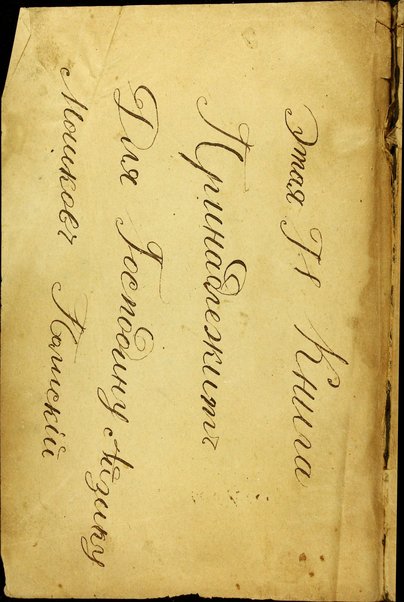 Этая Гн Книга
Принадлежитъ
Для Господину Айзику
Мошковъ Камскій